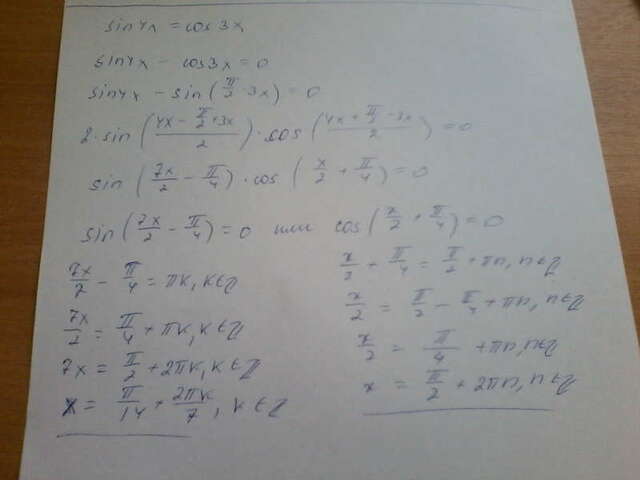 sin4x = cos3x
sin4x - cos3x = 0
sin4x - sin(π/2 - 3x) = 0
2·sin((4x - π/2 + 3x)/2)·cos((4x + π/2 - 3x)/2) = 0
sin(7x/2 - π/4)·cos(x/2 + π/4) = 0
sin(7x/2 - π/4) = 0 или cos(x/2 + π/4) = 0
7x/2 - π/4 = πk, k∈Z
7x/2 = π/4 + πk, k∈Z
7x = π/2 + 2πk, k∈Z
x = π/14 + 2πk/7, k∈Z
x/2 + π/4 = π/2 + πn, n∈Z
x/2 = π/2 - π/4 + πn, n∈Z
x/2 = π/4 + πn, n∈Z
x = π/2 + 2πn, n∈Z